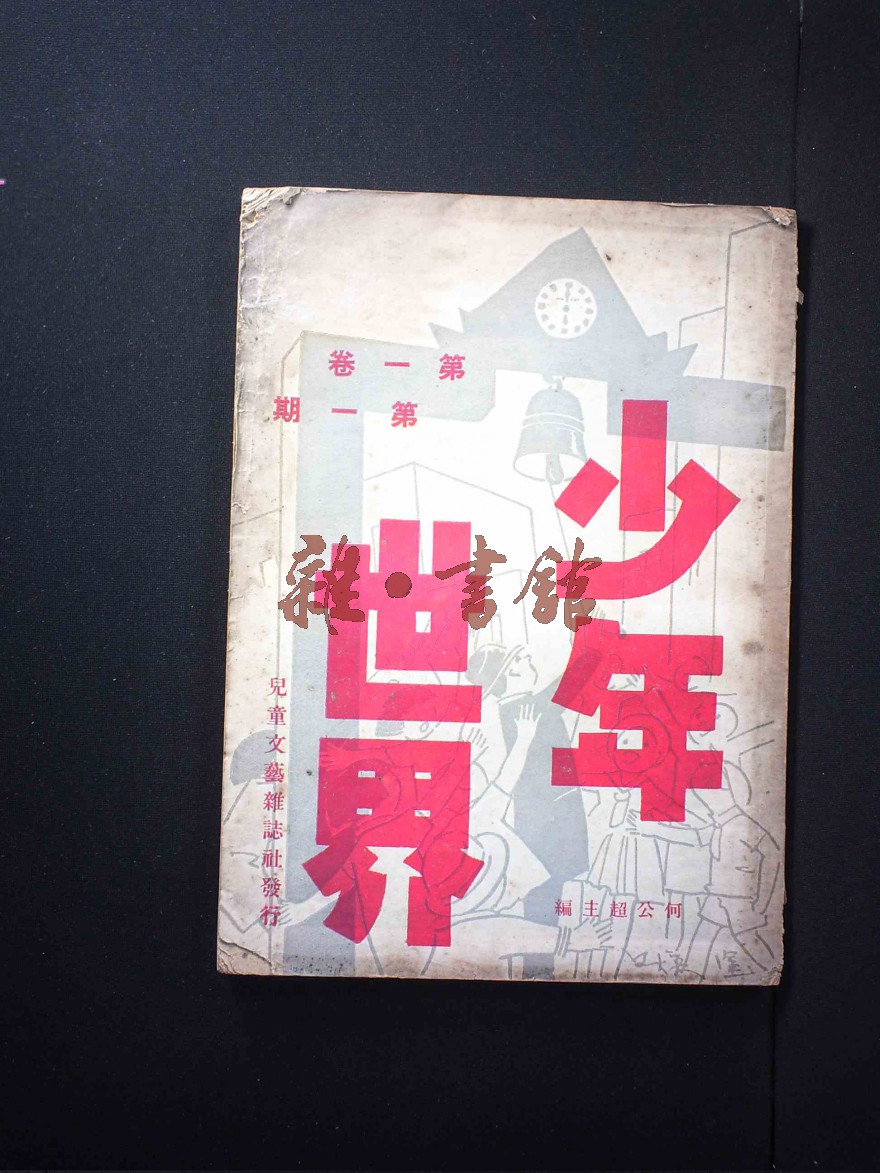 第一卷
第一期
少年
世界
何公超主編
兒童文藝雜誌社發行
雜·書館